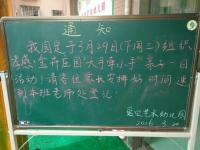 通知
我园定于3月29日(下周二)组织
孝感:金卉庄园"大手牵小手"亲子一日
活动!请各位家长安排好时间速
到本班老师处登记。
艺术幼儿园
2016.3.20